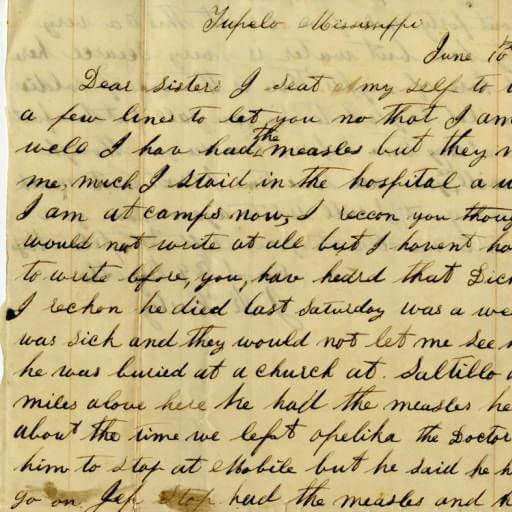 Tupelo Mississippi
June 10th
Dear sister I seat my self to
a few lines to let you no that I am
well I hav had the measles but they
me, much I staid in the hospital a
I am at camps now, I reccon you
would not write at all but I havent
to write before, you, hav heard that
I reckon he died last saturday was a
was sick and they would not let me see
he was buried at a church at. Saltillo
miles above here he hatl the measles he
about the time we lefat opelika the Doctor
him to stop at Mobile but he said he
go on. Jap Stop had the measles and